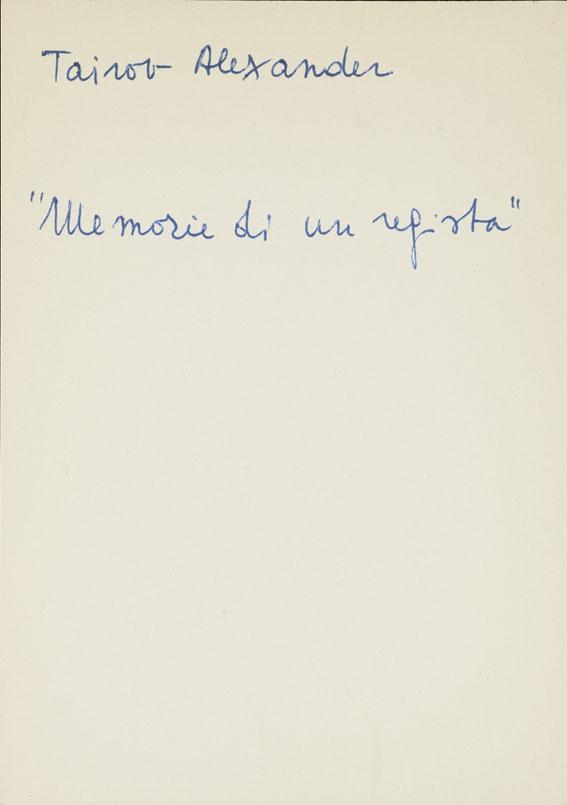 Tairov Alexander
"Memorie di un regista"